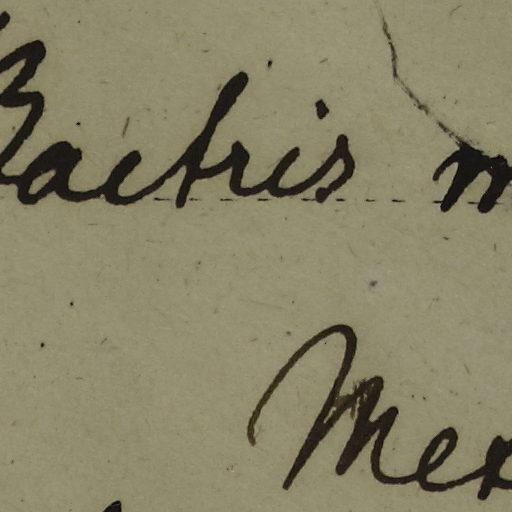 Bactris m
Mex